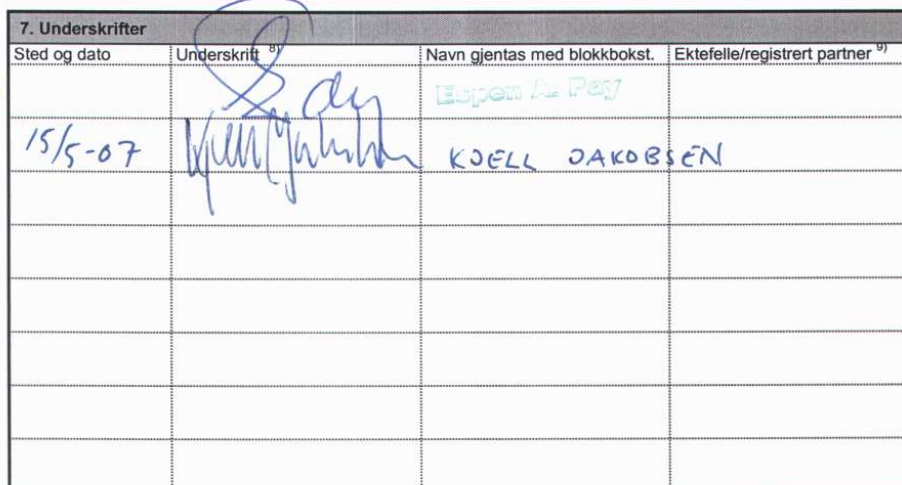 7. Underskrifter
Sted og dato Underskrift 8) Navn gjentas med blokkbokst. Ektefelle/registrert partner 9)
Espen A. Pay
15/5-07 Kjell Jakobsen KJELL JAKOBSEN